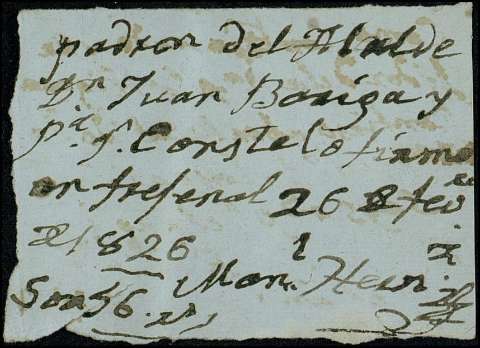 padron del Alalde
Dn Juan Bariga y
pa. q. Conste lo firmo
en frefenal 26 de febro
de 1826
Son 56 rs Man. Herr.